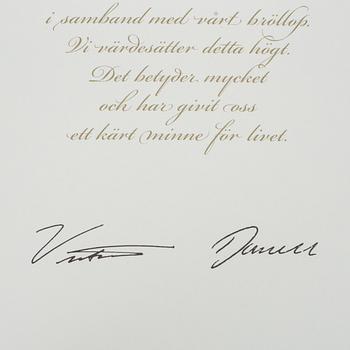 i samband med vårt bröllop.
Vi värdesätter detta högt.
Det betyder mycket
och har givit oss
ett kärt minne för livet.
Daniel